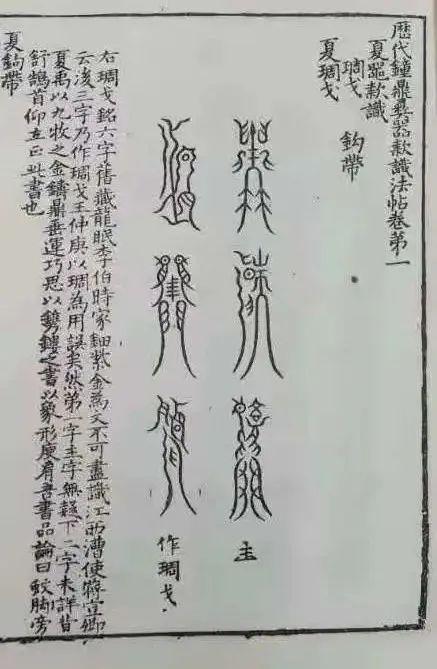 歷代鐘鼎彝器款識法帖卷第一
夏器款識
琱戈 鈎帶
夏琱戈
作琱戈
右琱戈銘六字舊藏龍眠李伯時家鈿紫金為文不可盡識江西漕使蔣宣卿
云後三字乃作琱戈王仲庚以琱為用誤矣然第一字字無疑下二字未詳昔
夏禹以九牧之金鑄鼎垂運巧思以鐫鏤之書以象形庾肩吾書品論曰蚊脚旁
舒鵠首仰立正此書也
夏鈎帶